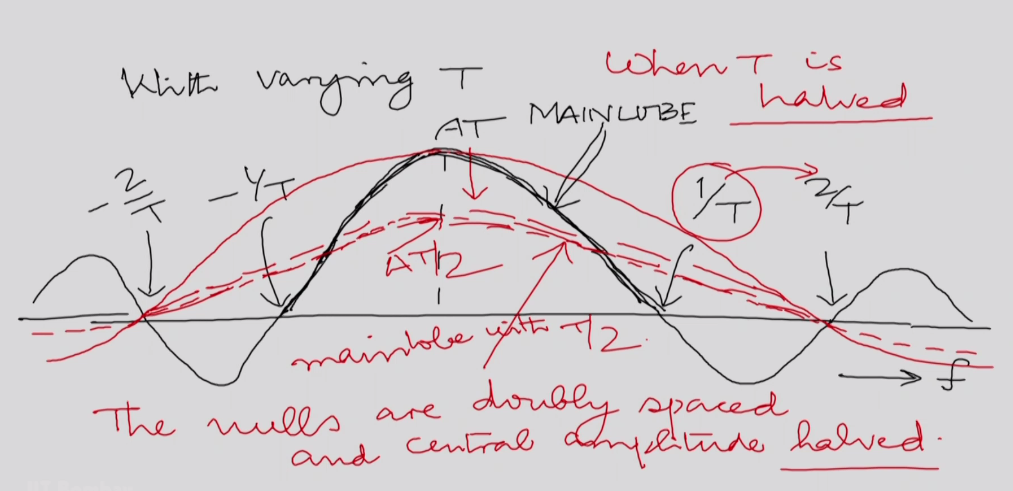 With varying T
When T is
halved
AT
MAINLOBE
-2/T
-1/T
1/T
2/T
AT/2
mainlobe with T/2.
f
The nulls are doubly spaced
and central amplitude halved.